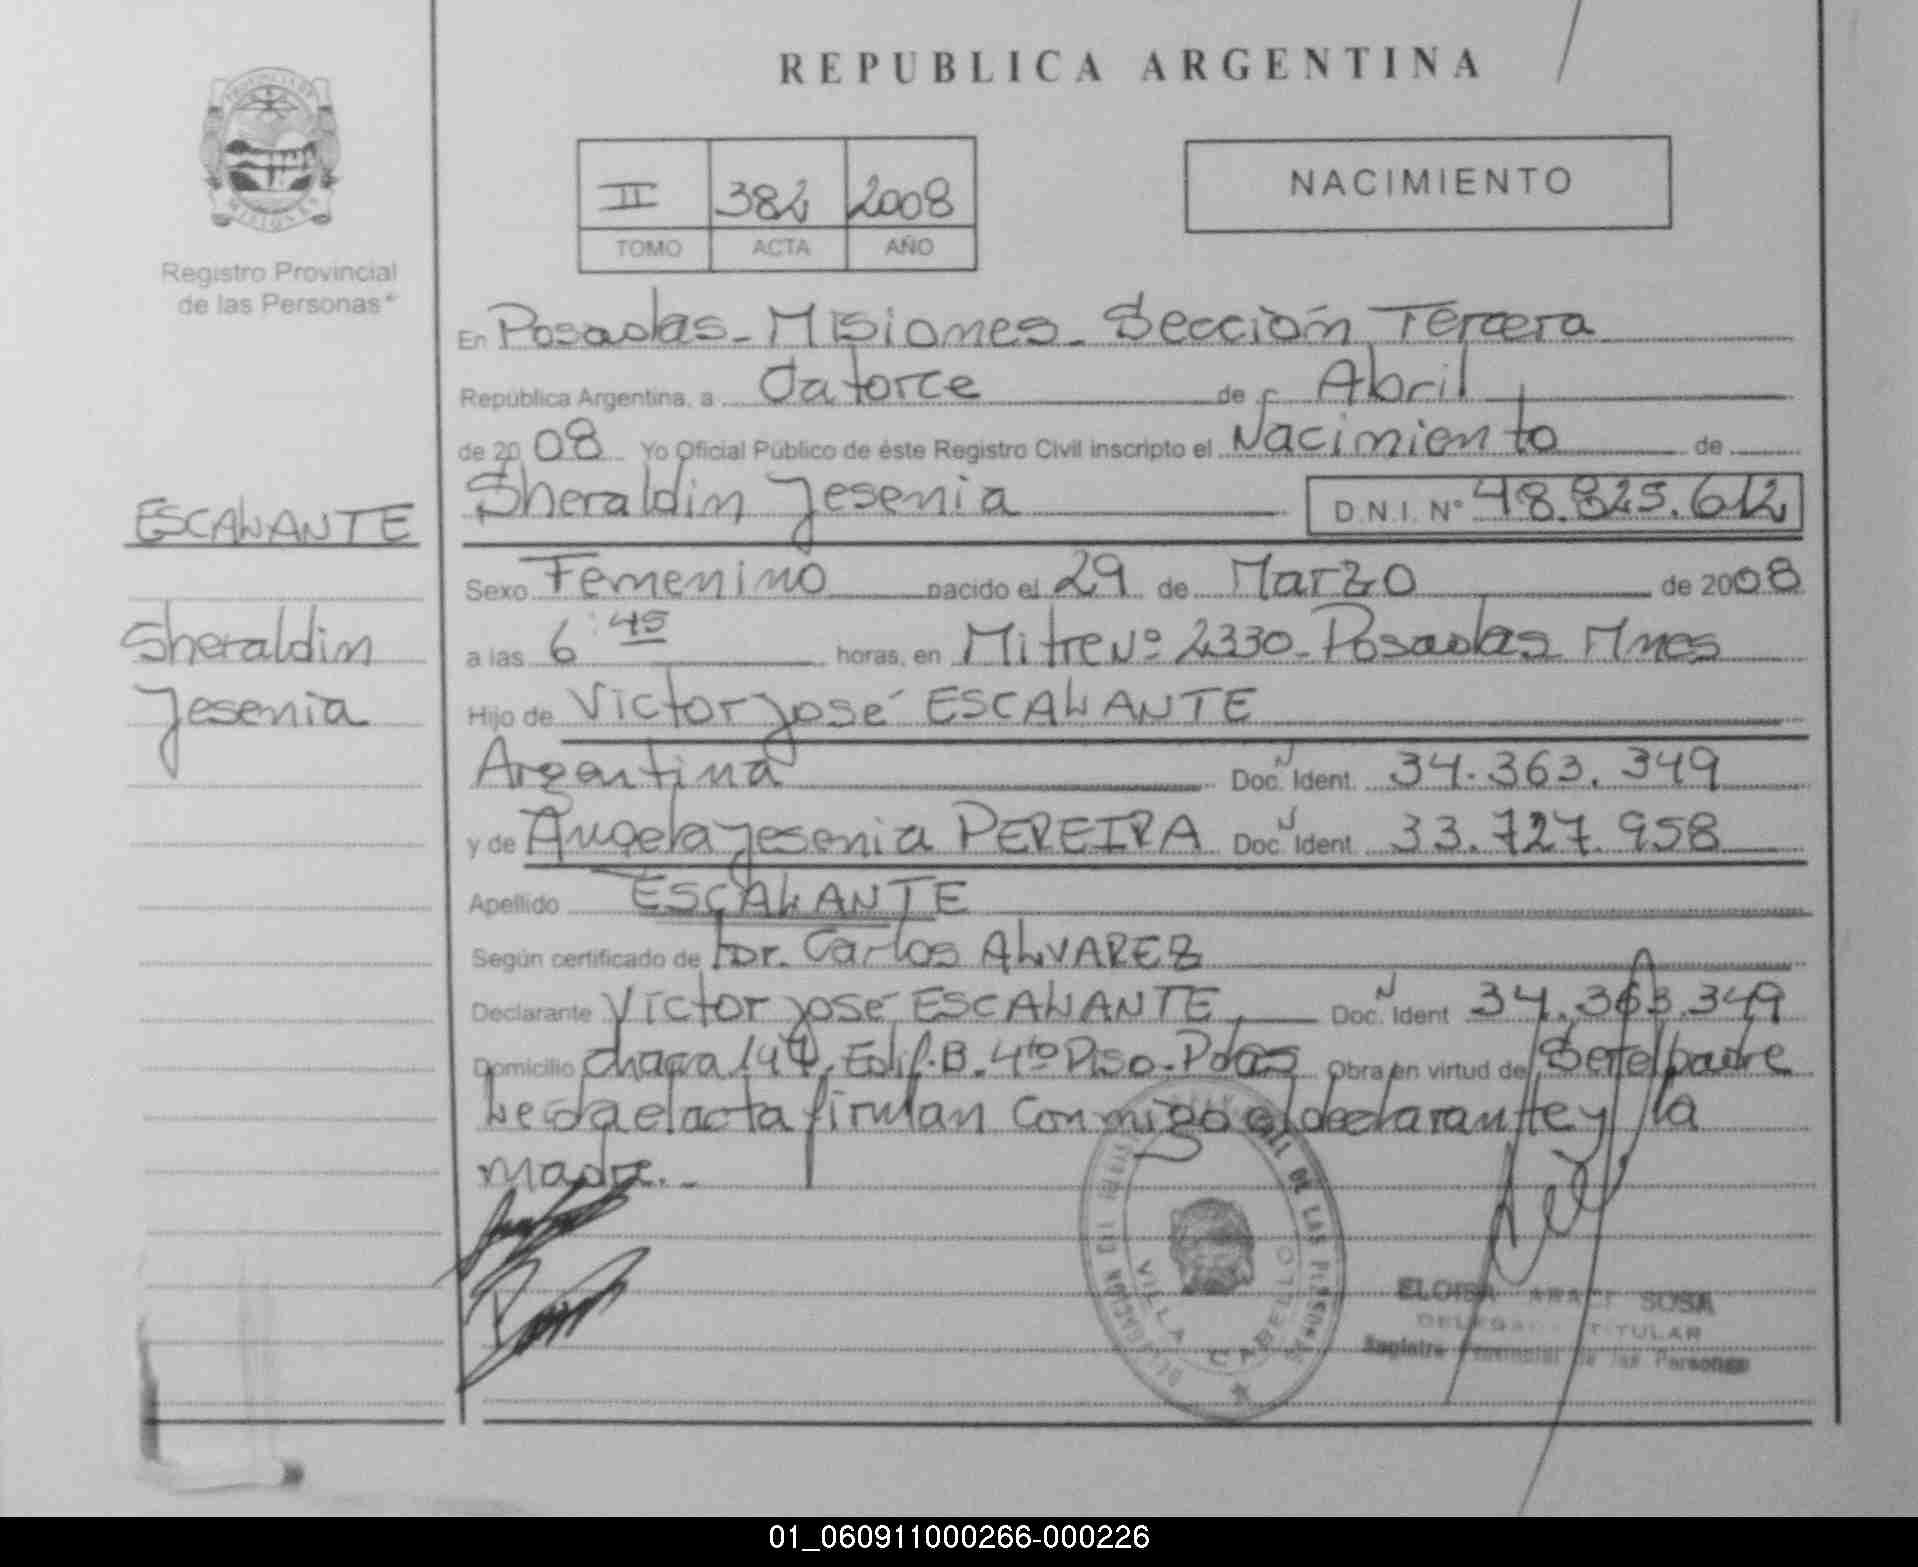 REPUBLICA ARGENTINA
PROVINCIA DE
MISIONES
Registro Provincial
de las Personas
II 382 2008
TOMO ACTA AÑO
NACIMIENTO
En Posadas - Misiones - Sección Tercera
República Argentina, a Catorce de Abril
de 2008 Yo Oficial Público de éste Registro Civil inscripto el Nacimiento de
Sheraldin Jesenia D.N.I. N° 48.825.612
ESCALANTE
Sheraldin
Jesenia
Sexo Femenino nacido el 29 de Marzo de 2008
a las 6:45 horas, en Mitre Nº 2330 - Posadas Mnes
Hijo de Victor José ESCALANTE
Argentina Doc. Ident. 34.363.349
y de Angela Jesenia PEREIRA Doc. Ident. 33.727.958
Apellido ESCALANTE
Según certificado de Dr. Carlos ALVAREZ
Declarante Victor José ESCALANTE Doc. Ident. 34.363.349
Domicilio Chacra 147, Edif. B. 4to Piso - Pdas Obra en virtud de Ser el padre
Leida el acta firman conmigo el declarante y la
madre. -
DELEGACION
DE LAS PERSONAS
VILLA CABELLO
ELOISA ARACI SOSA
DELEGADA TITULAR
Registro Provincial de las Personas
01_060911000266-000226